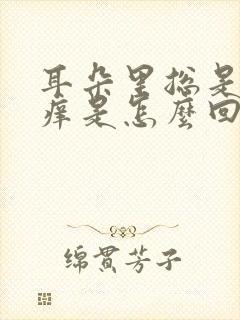 耳朵里总是
痒是怎麼回
绵贯芳子